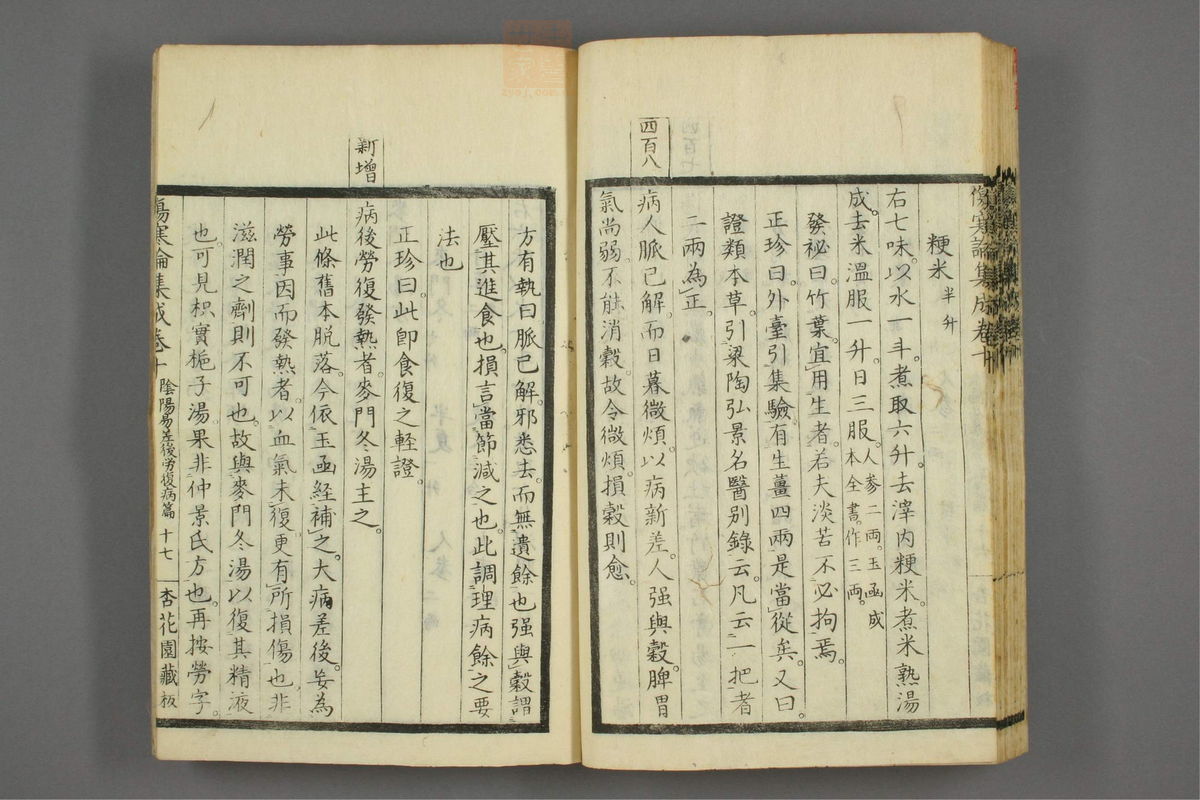 傷寒論集成卷十
粳米半升
右七味。以水一斗。煮取六升。去滓。内粳米。煮米熟湯
成。去米。溫服一升。日三服。人參二兩。玉函成本全書。作三兩。
發祕曰。竹葉宜用生者。若夫淡苦不必拘焉。
正珍曰。外臺引集驗。有生薑四兩。是當從矣。又曰。
證類本草。引梁陶弘景名醫別錄云。凡云一把者
二兩為正。
四百八
病人脈已解。而日暮微煩。以病新差。人强與穀。脾胃
氣尚弱。不能消穀。故令微煩。損穀則愈。
方有執曰。脈已解。邪悉去。而無遺餘也。强與穀。謂
壓其進食也。損言當節減之也。此調理病餘之要
法也
正珍曰。此卽食復之輕證。
新增
病後勞復發熱者。麥門冬湯主之。
此條舊本脫落。今依玉函經補之。大病差後。妄為
勞事。因而發熱者。以血氣未復。更有所損傷也。非
滋潤之劑則不可也。故與麥門冬湯。以復其精液
也。可見枳實梔子湯。果非仲景氏方也。再按勞字。
傷寒論集成卷十 陰陽易差後勞復病篇 十七 杏花園藏板